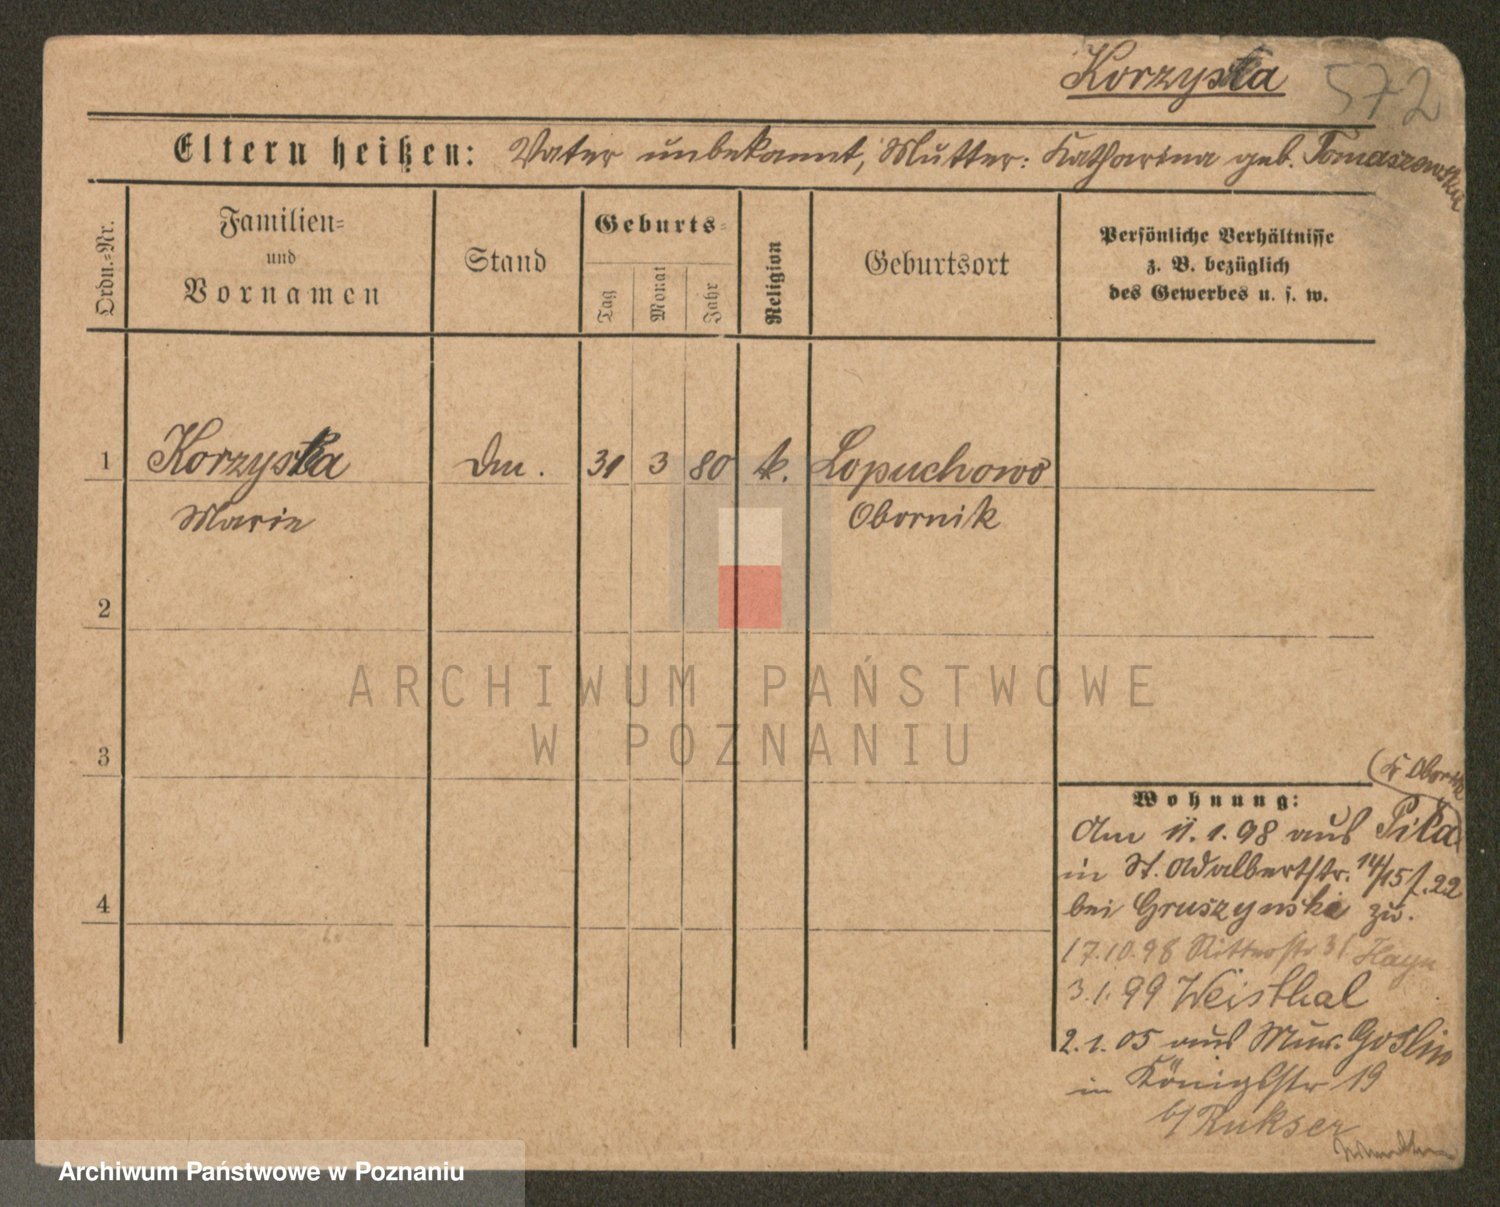 Korzyska 572
Eltern heißen: Vater unbekannt, Mutter: Katharina geb. Tomaszewska
Ordn.-Nr. Familien- und Vornamen Stand Geburts- Tag Monat Jahr Religion Geburtsort Persönliche Verhältnisse z. B. bezüglich des Gewerbes u. s. w.
1 Korzyska Dm. 31 3 80 k. Lopuchowo
Marie Obornik
2
3
4
(Kr Obornik
Wohnung:
Am 11.1.98 aus Pila)
in St. Adalbertstr. 14/15 f. 22
bei Gruszynski zu.
17.10.98 Ritterstr 31 Hayn
3.1.99 Weisthal
2.1.05 aus Mur. Goslin
in Königstr 19
b/ Rukser
ARCHIWUM PAŃSTWOWE
W POZNANIU
Archiwum Państwowe w Poznaniu